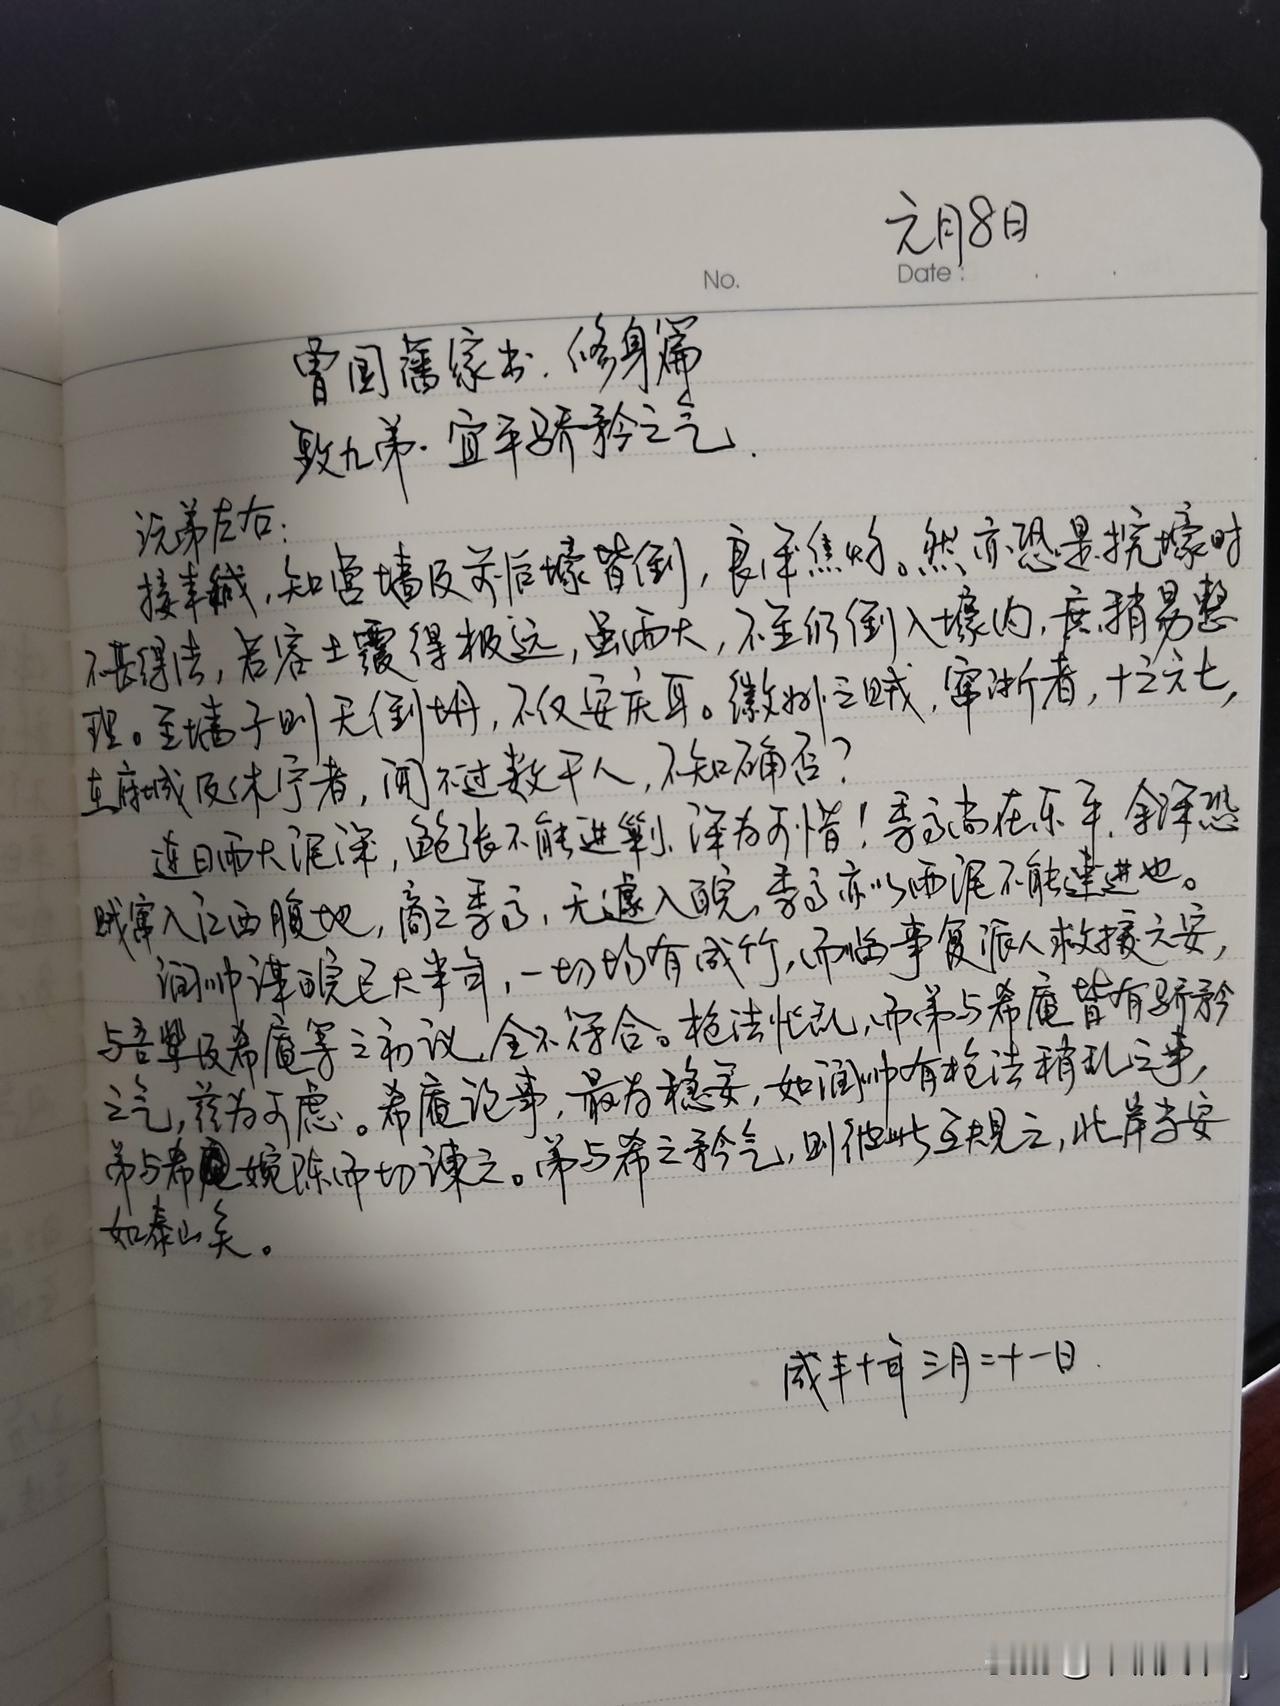 元月8日
No.
Date :
曾国藩家书.修身篇
致九弟.宜平骄矜之气.
沅弟左右:
接来缄,知营墙及前后壕皆倒,良深焦灼。然亦恐是挖壕时
不甚得法,若容土覆得极远,虽雨大,不至仍倒入壕内,庶稍易整
理。至墙子则无倒坍,不仅安庆耳。徽州之贼,窜浙者,十之六七,
在府城及休宁者,闻不过数千人,不知确否?
连日雨大泥深,鲍张不能进剿,深为可惜!季高尚在乐平,余深恐
贼窜入江西腹地,商之季高,无遽入皖,季高亦以雨泥不能速进也。
润帅谋皖已大半年,一切均有成竹,而临事复派人救援六安,
与吾辈及希庵等之初议,全不符合。枪法忙乱,而弟与希庵皆有骄矜
之气,兹为可虑。希庵论事,最为稳妥,如润帅有枪法稍乱之事,
弟与希庵婉陈而切谏之。弟与希之矜气,则彼此互规之,北岸当安
如泰山矣。
咸丰十年三月二十一日.